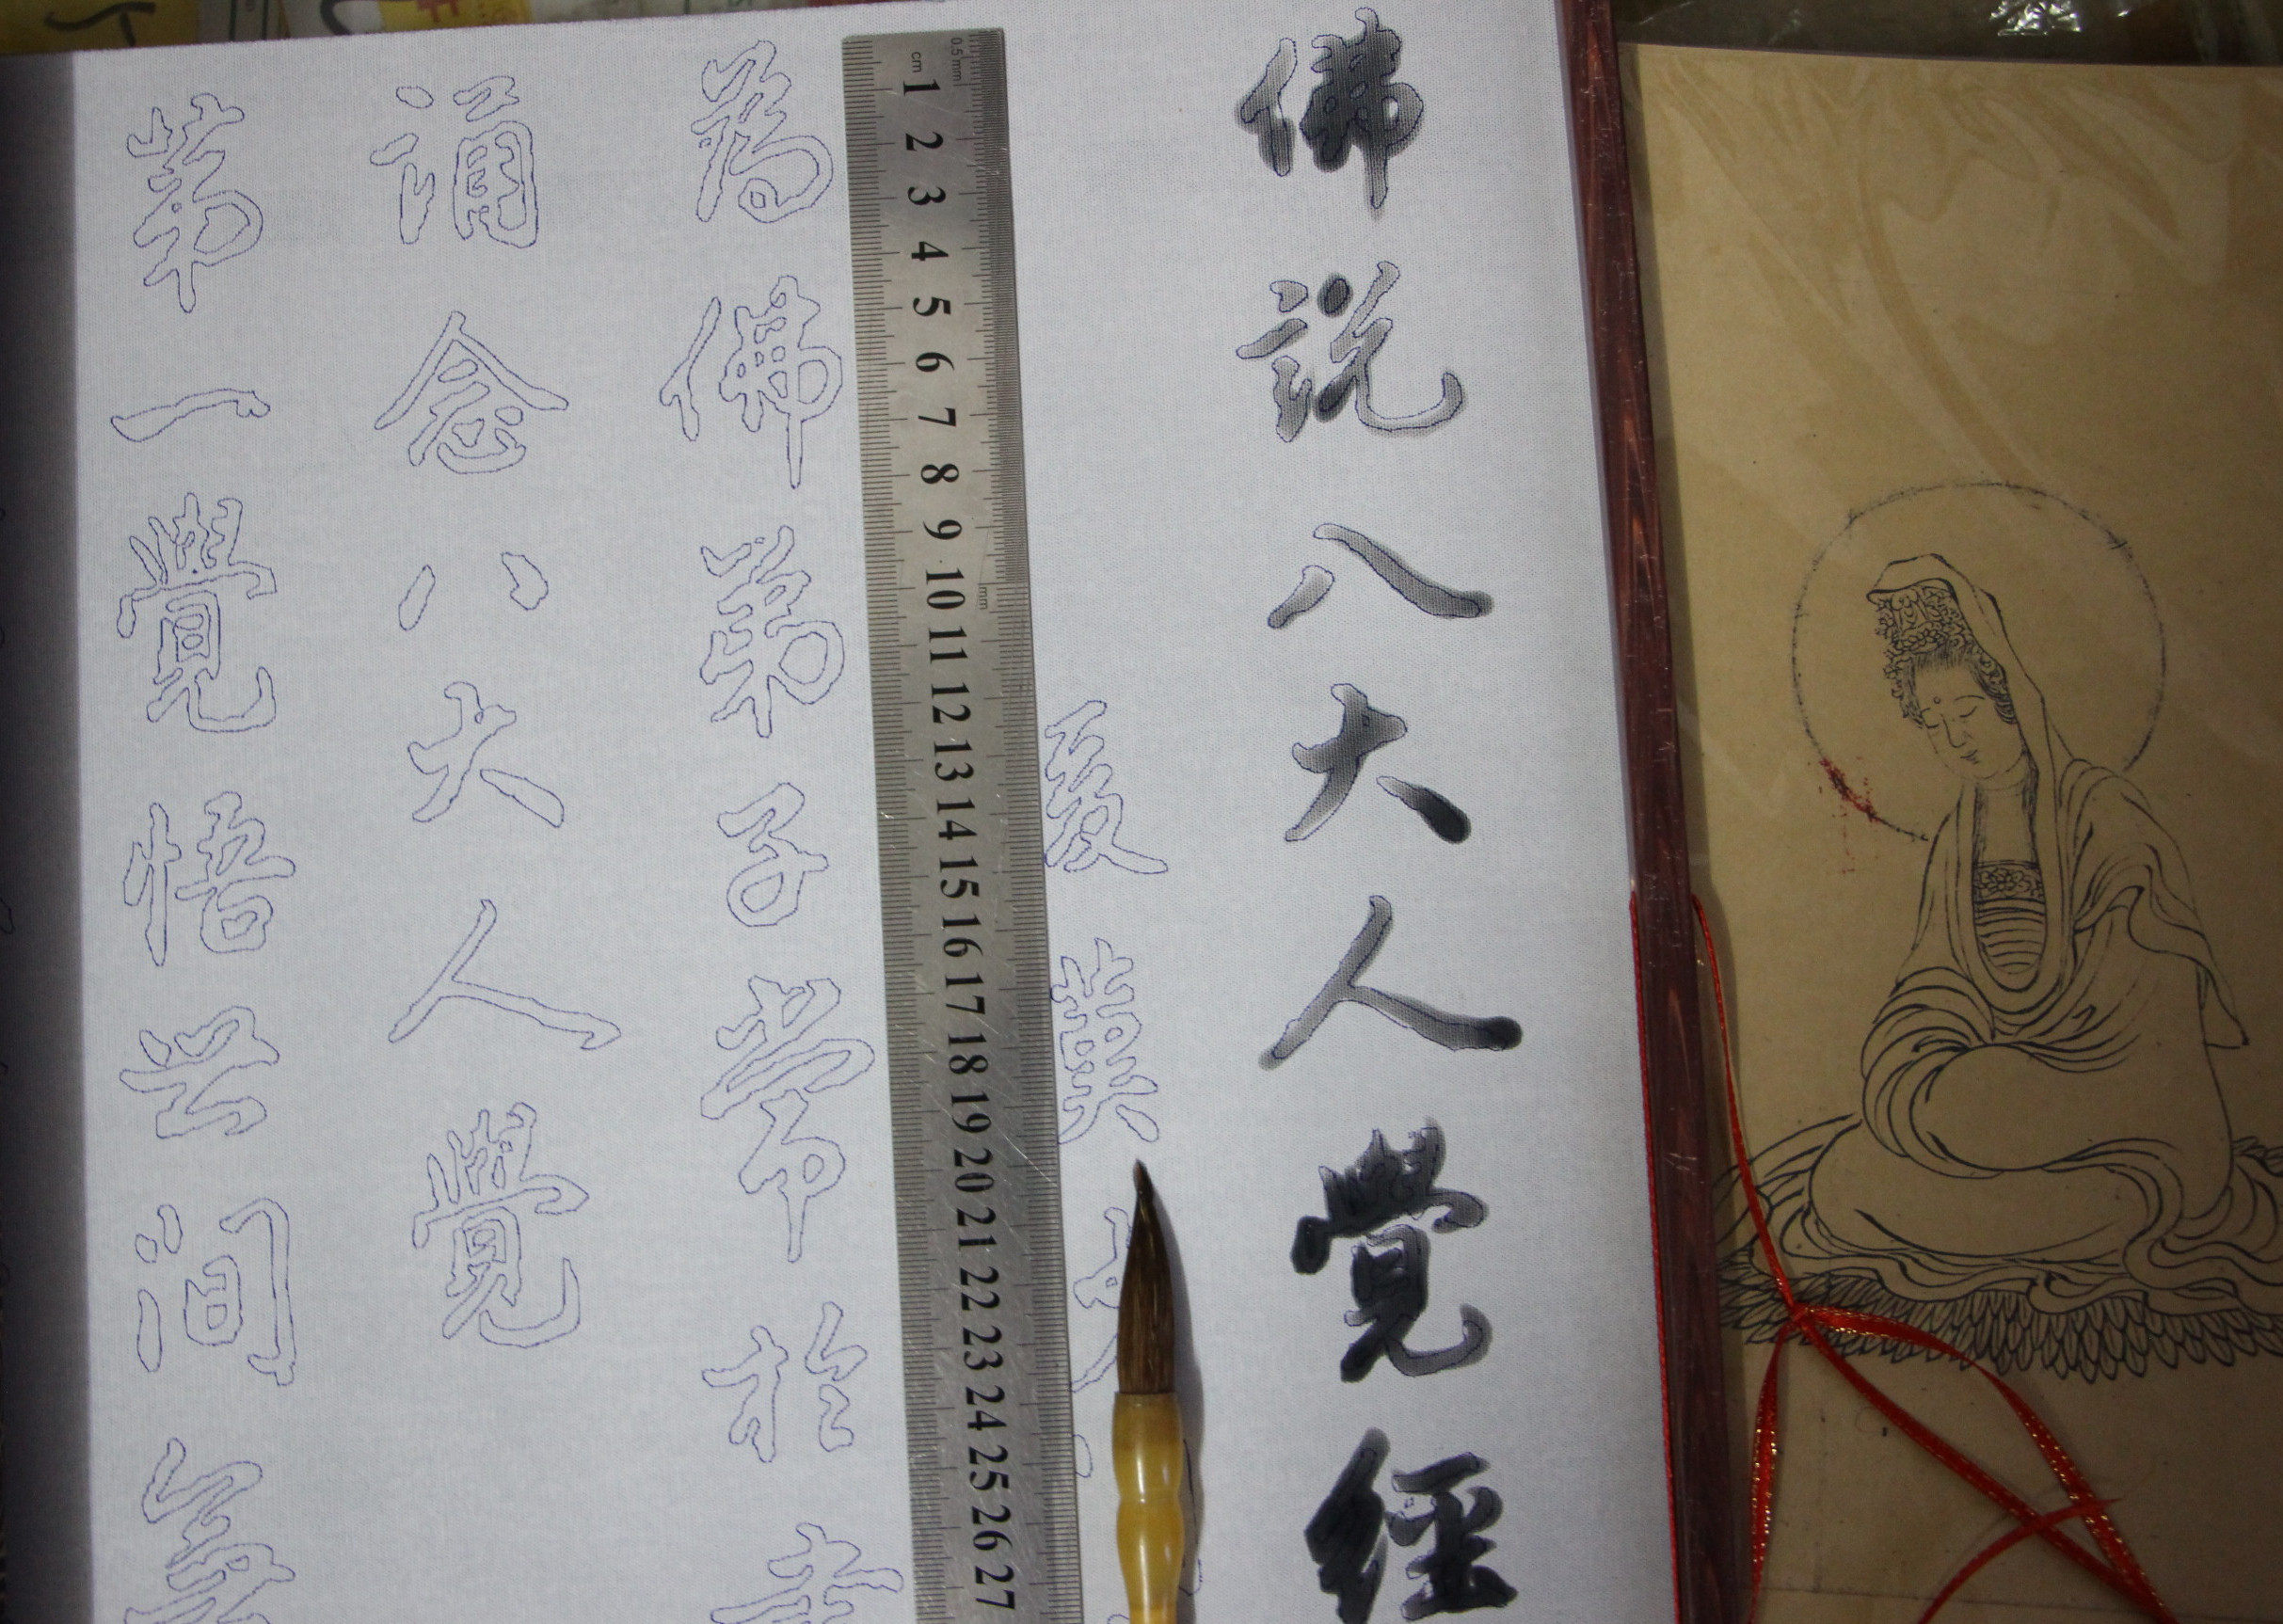 佛說八大人覺經
cm 0.5mm
1 2 3 4 5 6 7 8 9 10 11 12 13 14 15 16 17 18 19 20 21 22 23 24 25 26 27
mm
為佛弟子常於
誦念八大人覺
第一覺悟世間無